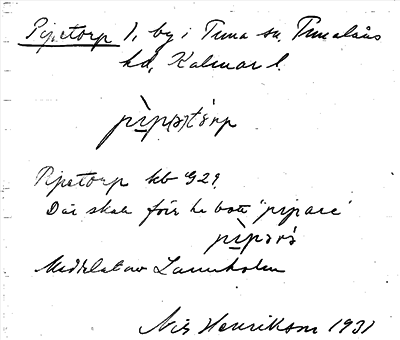 Pipetorp 1, by i Tuna sn, Tunaläns
hd, Kalmar l.
pìp(ə)tórp
Pipetorp kb 929.
Där skola förr ha bott "pipare"
pìpərə
Meddelat av Lannholm
Nils Henrikson 1931